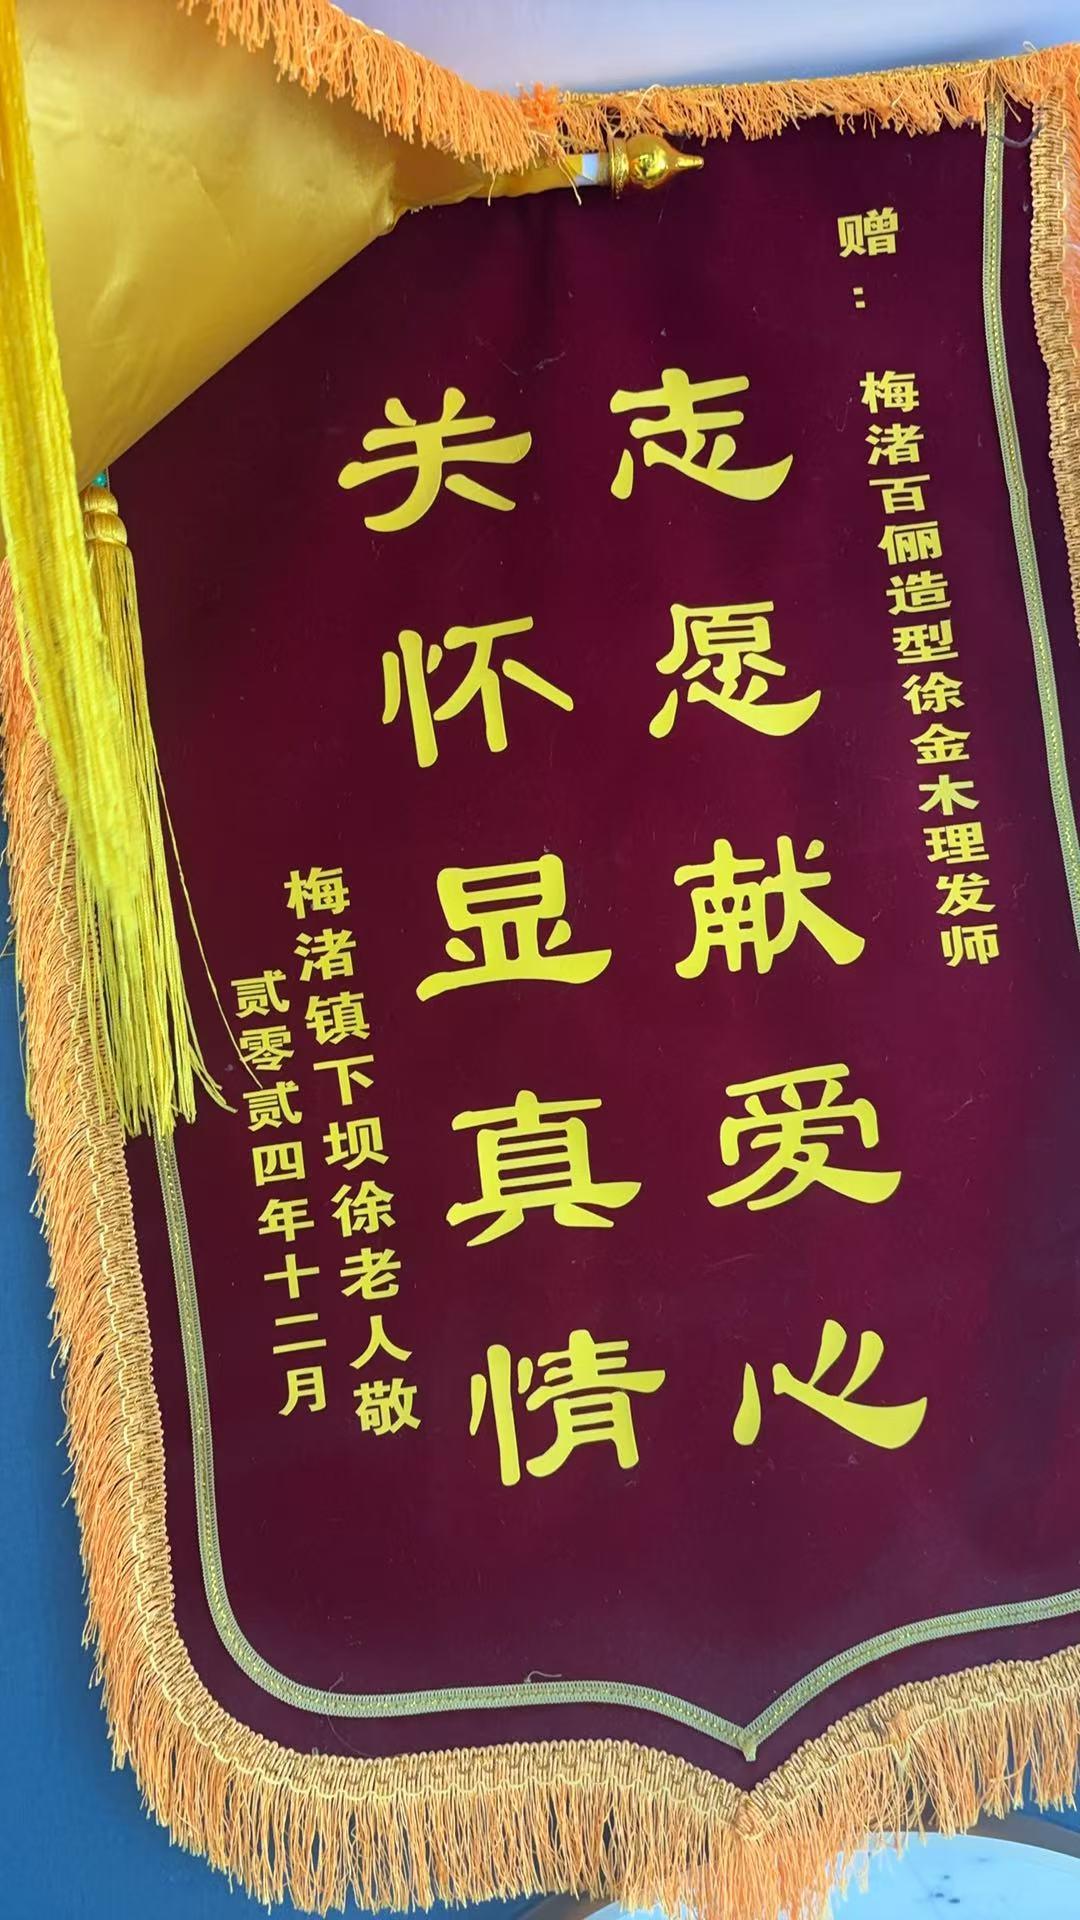 赠：梅渚百俪造型徐金木理发师
志愿献爱心
关怀显真情
梅渚镇下坝徐老人敬
贰零贰四年十二月